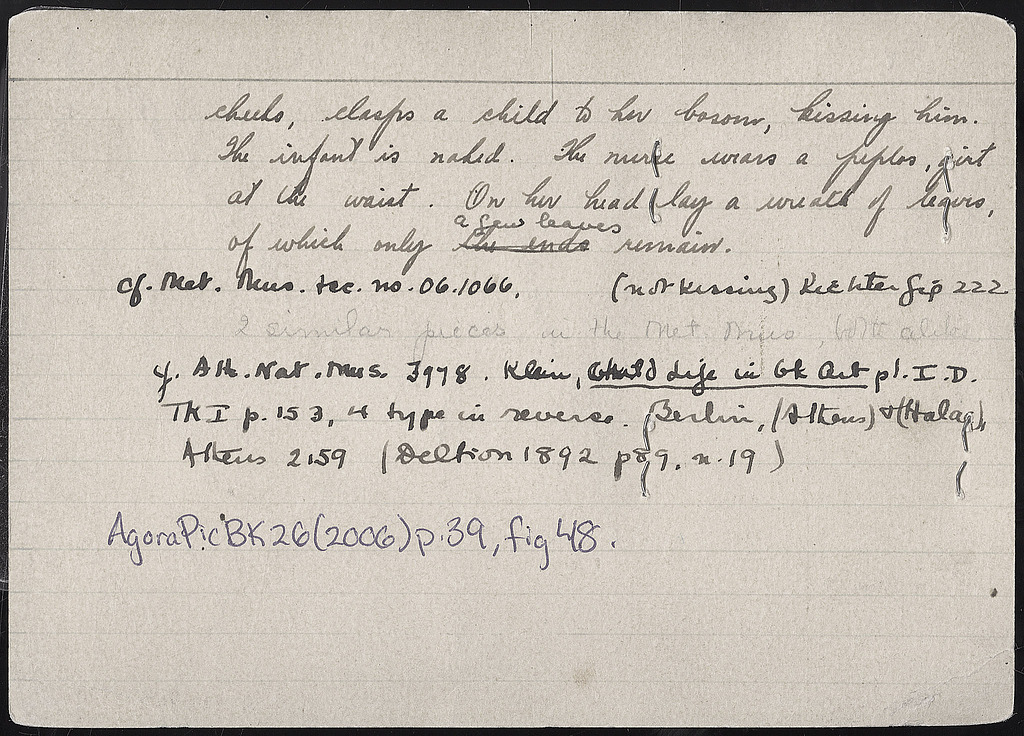 cheeks, clasps a child to her bosom, kissing him.
The infant is naked. The nurse wears a peplos, girt
at the waist. On her head lay a wreath of leaves,
a few leaves
of which only the ends remain.
cf. Met. Mus. acc. no. 06.1066. (not kissing) Richter fig 222
2 similar pieces in the Met. Mus, both alike
cf. Ath. Nat. Mus. 3978. Klein, Child Life in Gk Art pl. I. D.
TK I p. 153, 4 type in reverse. Berlin, (Athens) &
Athens 2159 (Deltion 1892 p 89, n. 19)
AgoraPicBK 26 (2006) p. 39, fig 48.